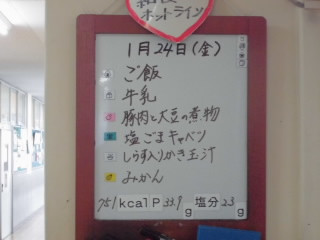 ホットライン
1月24日(金)
ご飯
牛乳
豚肉と大豆の煮物
塩ごまキャベツ
しらす入りかき玉汁
みかん
751kcal P33.9g 塩分2.3g